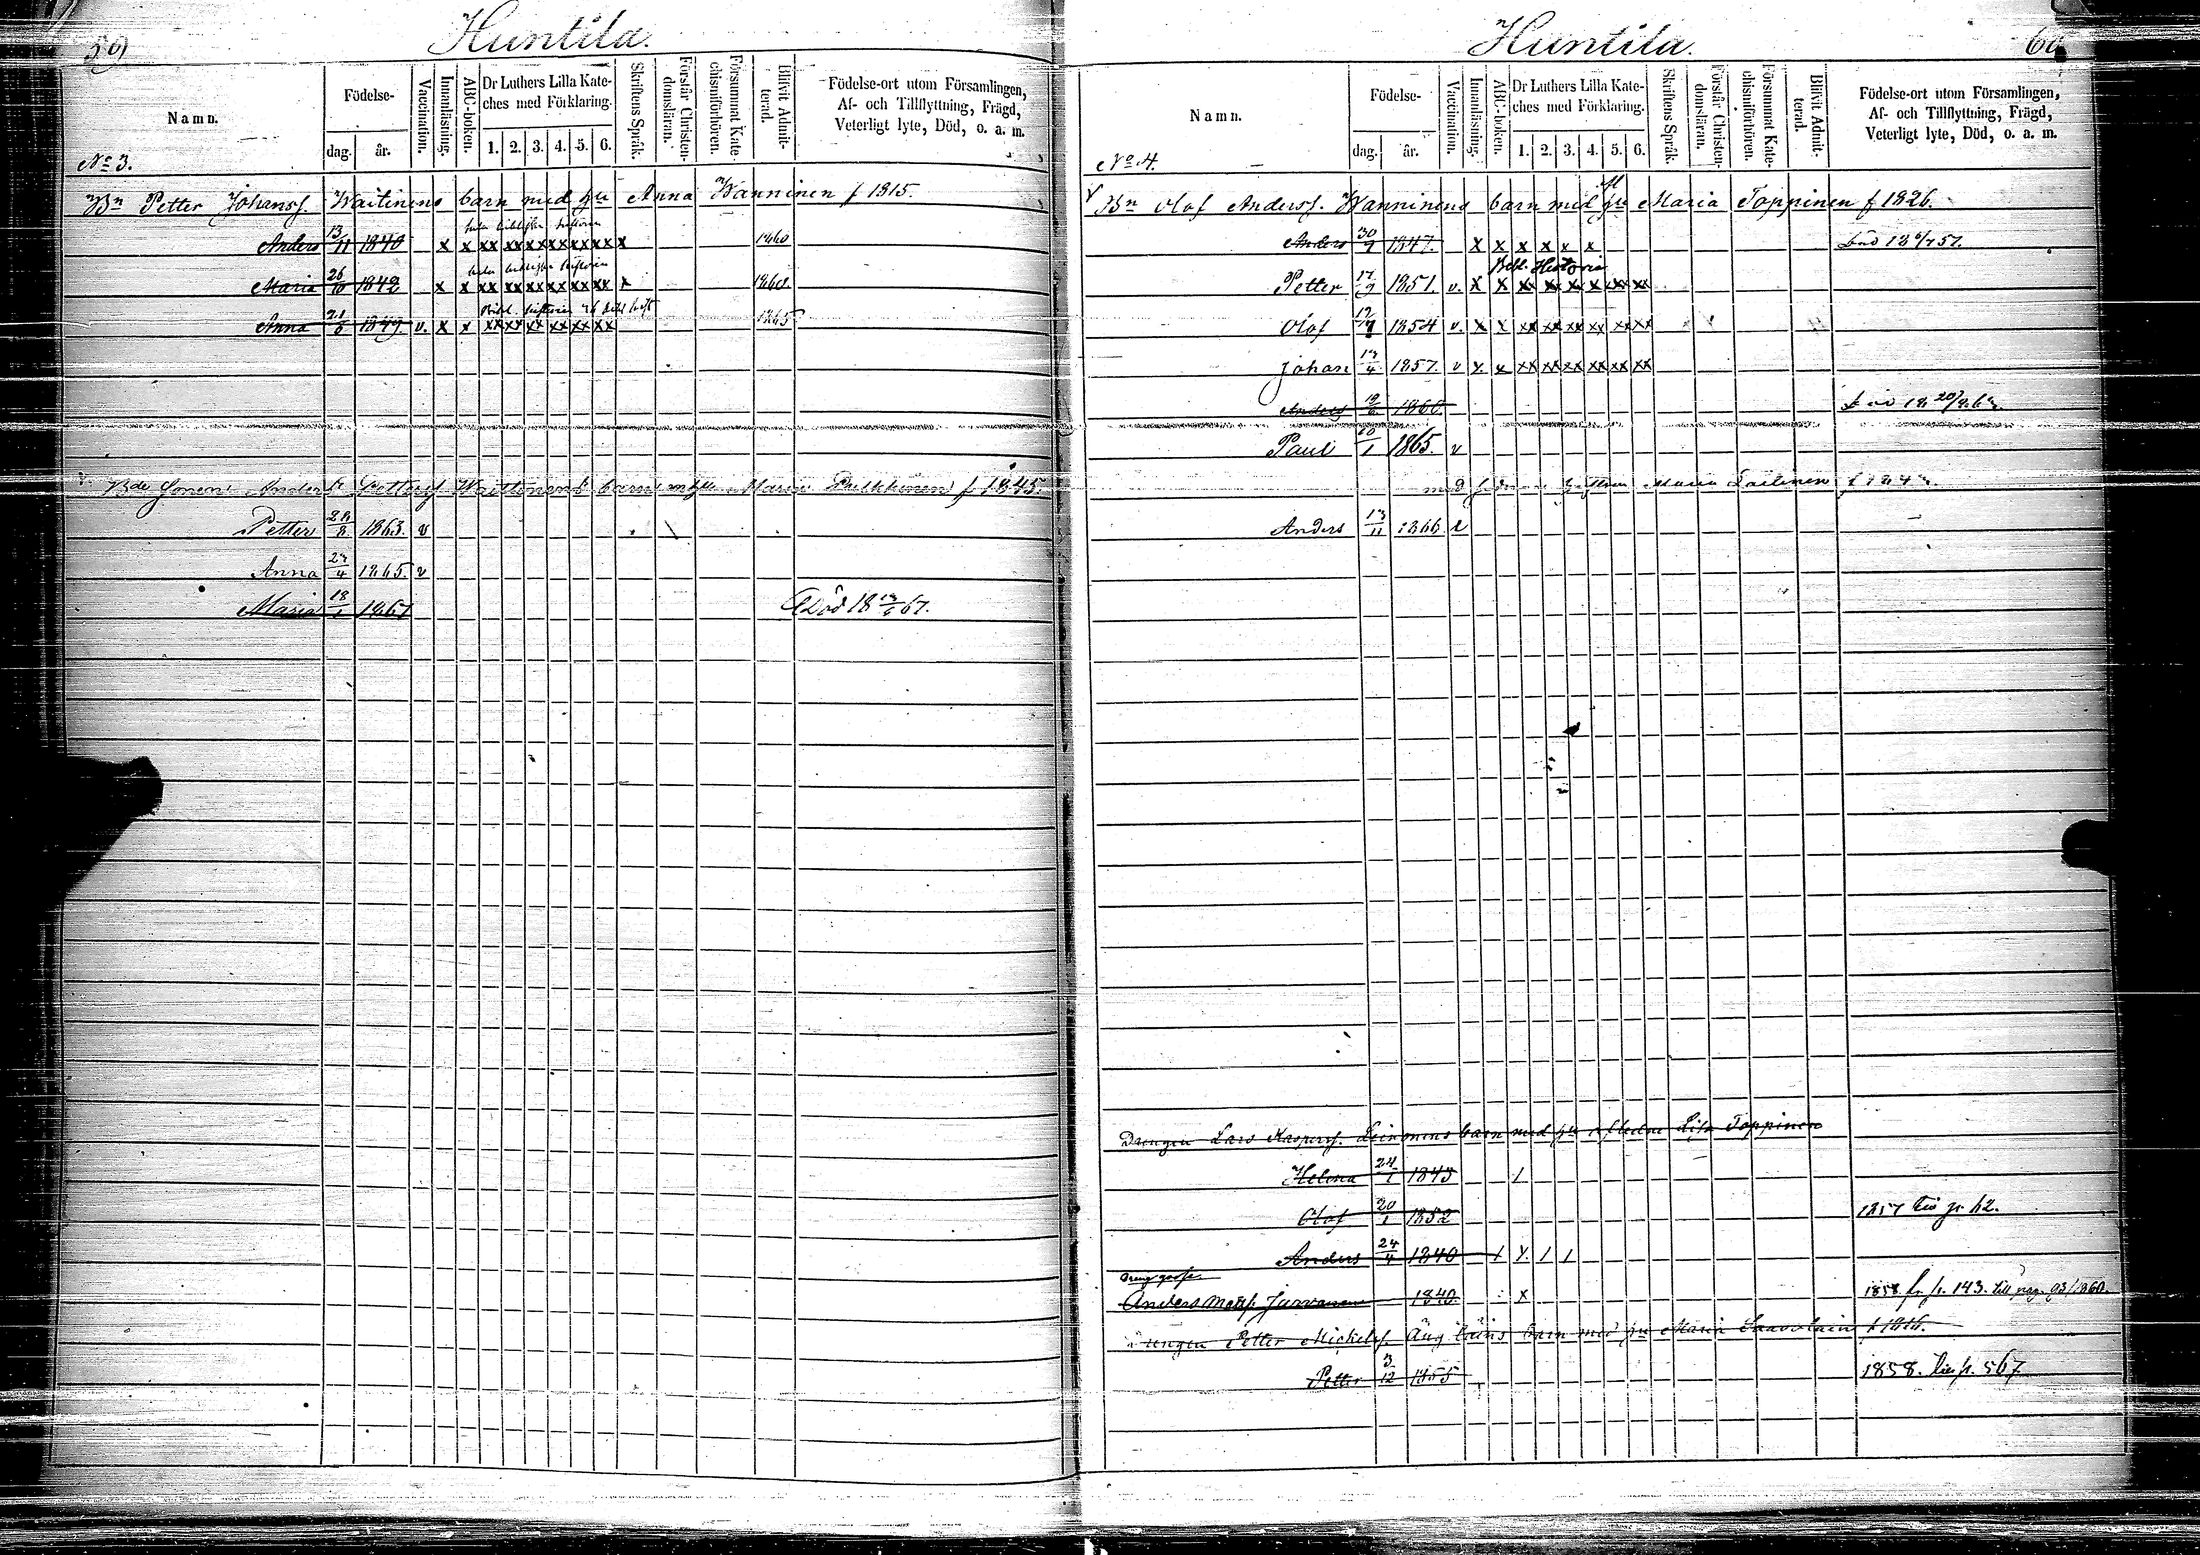 59
Huntila.
Namn.
Födelse-
dag. år.
Vaccination.
Innanläsning.
ABC-boken.
Dr Luthers Lilla Kateches med Förklaring.
1. 2. 3. 4. 5. 6.
Skriftens Språk.
Förstår Christendomsläran.
Försummat Katechismiförhören.
Blifvit Admitterad.
Födelse-ort utom Församlingen,
Af- och Tillflyttning, Frägd,
Veterligt lyte, Död, o. a. m.
No 3.
Bn Petter Johansf. Waitinens barn med hu Anna Wanninen f 1815.
Anders 13/11 1840 x x xx xx xx xx xx xx x 1860
Maria 26/10 1842 x x xx xx xx xx xx xx x 1860
Bibl. historien
Anna 21/5 1849 v. x x xx xx xx xx xx xx 1865
Bde Sonen Anders Pettersf Waittinens barn m h Maria Pulkkinen f 1845.
Petter 28/8 1863. v
Anna 23/4 1865. v
Maria 18/1 1867 Död 18 13/5 67.
Huntila.
60
Namn.
Födelse-
dag. år.
Vaccination.
Innanläsning.
ABC-boken.
Dr Luthers Lilla Kateches med Förklaring.
1. 2. 3. 4. 5. 6.
Skriftens Språk.
Förstår Christendomsläran.
Försummat Katechismiförhören.
Blifvit Admitterad.
Födelse-ort utom Församlingen,
Af- och Tillflyttning, Frägd,
Veterligt lyte, Död, o. a. m.
No 4.
Bn Olof Andersf. Wanninens barn med hu Maria Toppinen f 1826.
Anders 30/9 1847. x x x x x x
Bibl. Historia
Petter 17/9 1851. v. x x xx xx xx x xx xx
Olof 1854 v. x x xx xx xx xx xx xx
Johan 13/4 1857. v x x xx xx xx xx xx xx
Anders 1860.
Paul 20/1 1865. v
med Maria
Anders 13/11 1866 v
Drengen Lars Kaspersf. barn med hu aflidne Lisa Toppinen
Helena 24/1 1845
Olof 20/1 1852 1857 62.
Anders 24/4 1840
Anders Mattsf. Jurvanen 1840. x 1858 fr p. 143. till pag. 93/1860.
Drengen Petter Michelsf. barn med hu Maria
Petter 3/12 1855 1858. p. 567